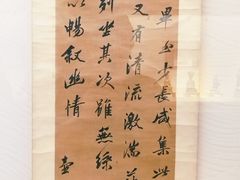 畢至少長咸集此
又有清流激湍
列坐其次雖無絲
以暢叙幽情